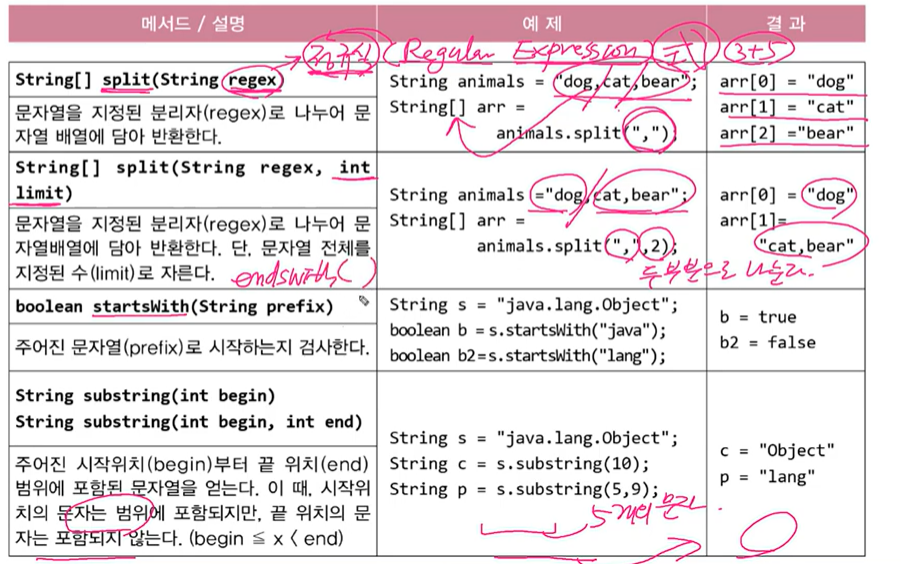 메서드 / 설명
예 제
결 과
정규식 (Regular Expression) 3+5
String[] split(String regex)
문자열을 지정된 분리자(regex)로 나누어 문
자열 배열에 담아 반환한다.
String animals = "dog,cat,bear";
String[] arr =
animals.split(",");
arr[0] = "dog"
arr[1] = "cat"
arr[2] ="bear"
String[] split(String regex, int
limit)
문자열을 지정된 분리자(regex)로 나누어 문
자열배열에 담아 반환한다. 단, 문자열 전체를
지정된 수(limit)로 자른다.
endsWith( )
String animals ="dog,cat,bear";
String[] arr =
animals.split(",",2);
두 부분으로 나눈다.
arr[0] = "dog"
arr[1]=
"cat,bear"
boolean startsWith(String prefix)
주어진 문자열(prefix)로 시작하는지 검사한다.
String s = "java.lang.Object";
boolean b =s.startsWith("java");
boolean b2=s.startsWith("lang");
b = true
b2 = false
String substring(int begin)
String substring(int begin, int end)
주어진 시작위치(begin)부터 끝 위치(end)
범위에 포함된 문자열을 얻는다. 이 때, 시작위
치의 문자는 범위에 포함되지만, 끝 위치의 문
자는 포함되지 않는다. (begin ≦ x < end)
String s = "java.lang.Object";
String c = s.substring(10);
String p = s.substring(5,9);
5개의 문자
c = "Object"
p = "lang"